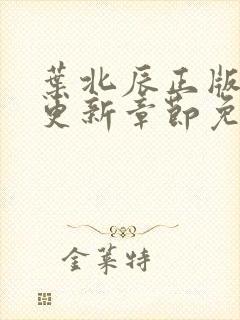 葉北辰正版
更新章節免
金萊特